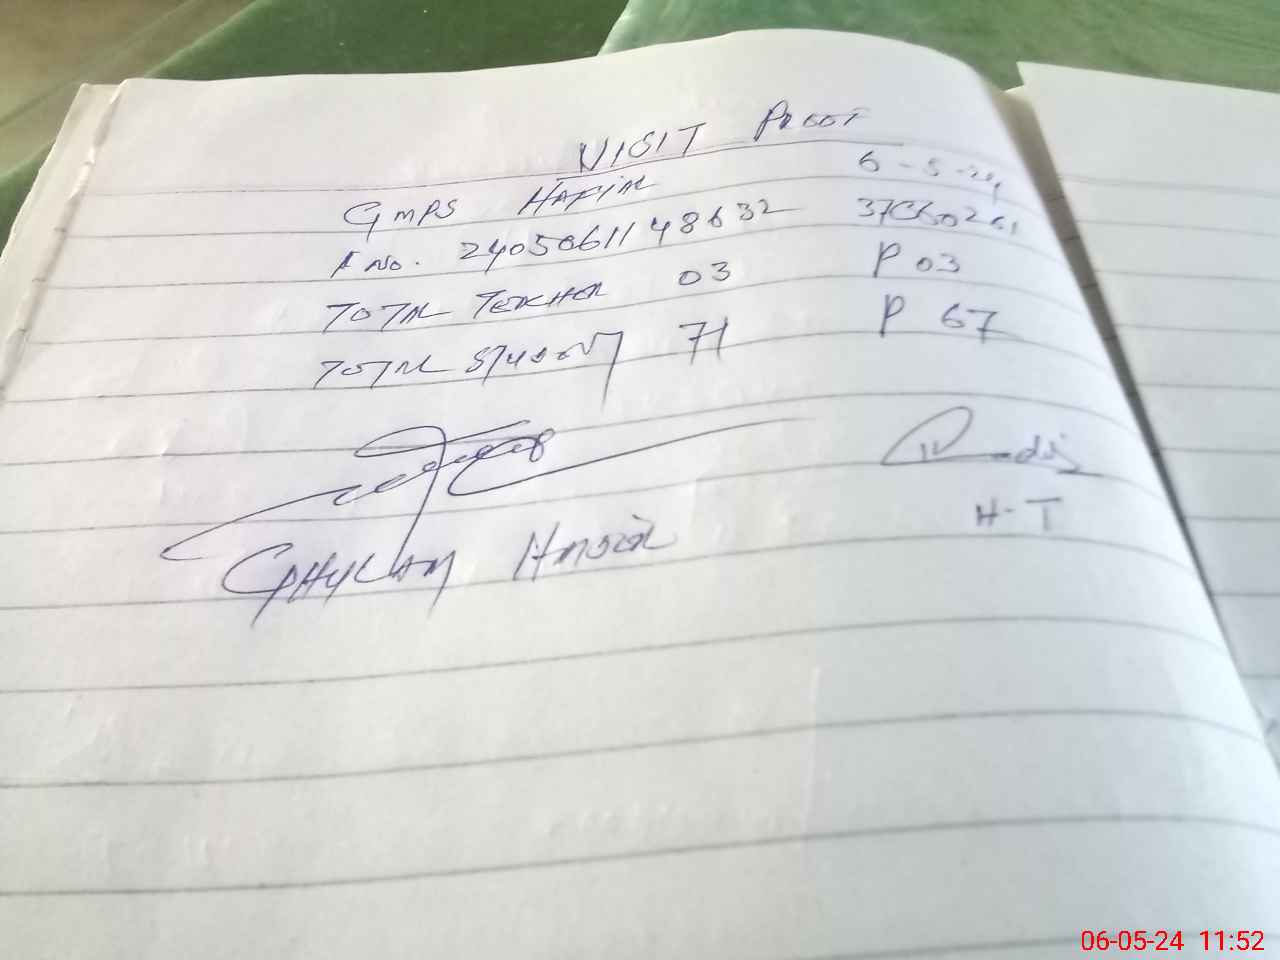 VISIT PROOF
GMPS HAKIM 6-5-24
A No. 240506114 8632 37360261
TOTAL TEACHER 03 P 03
TOTAL STUDENT 71 P 67
GHULAM HUSSAIN H-T
06-05-24 11:52